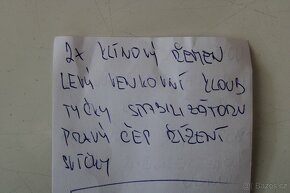 2x KLÍNOVÝ ŘEMEN
LEVÝ VENKOVNÍ KLOUB
TYČKY STABILIZÁTORU
PRAVÝ ČEP ŘÍZENÍ
SVÍČKY
Bazos.cz